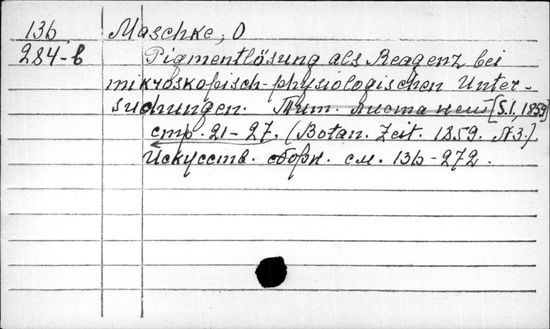 136 Maschke, O
284-b Pigmentlösung als Reagenz bei
mikroskopisch-physiologischen Unter-
suchungen. Тит. листа нет [S.l., 1859]
стр. 21-27. (Botan. Zeit. 1859. N3.)
Искусств. сборн. см. 136-272.